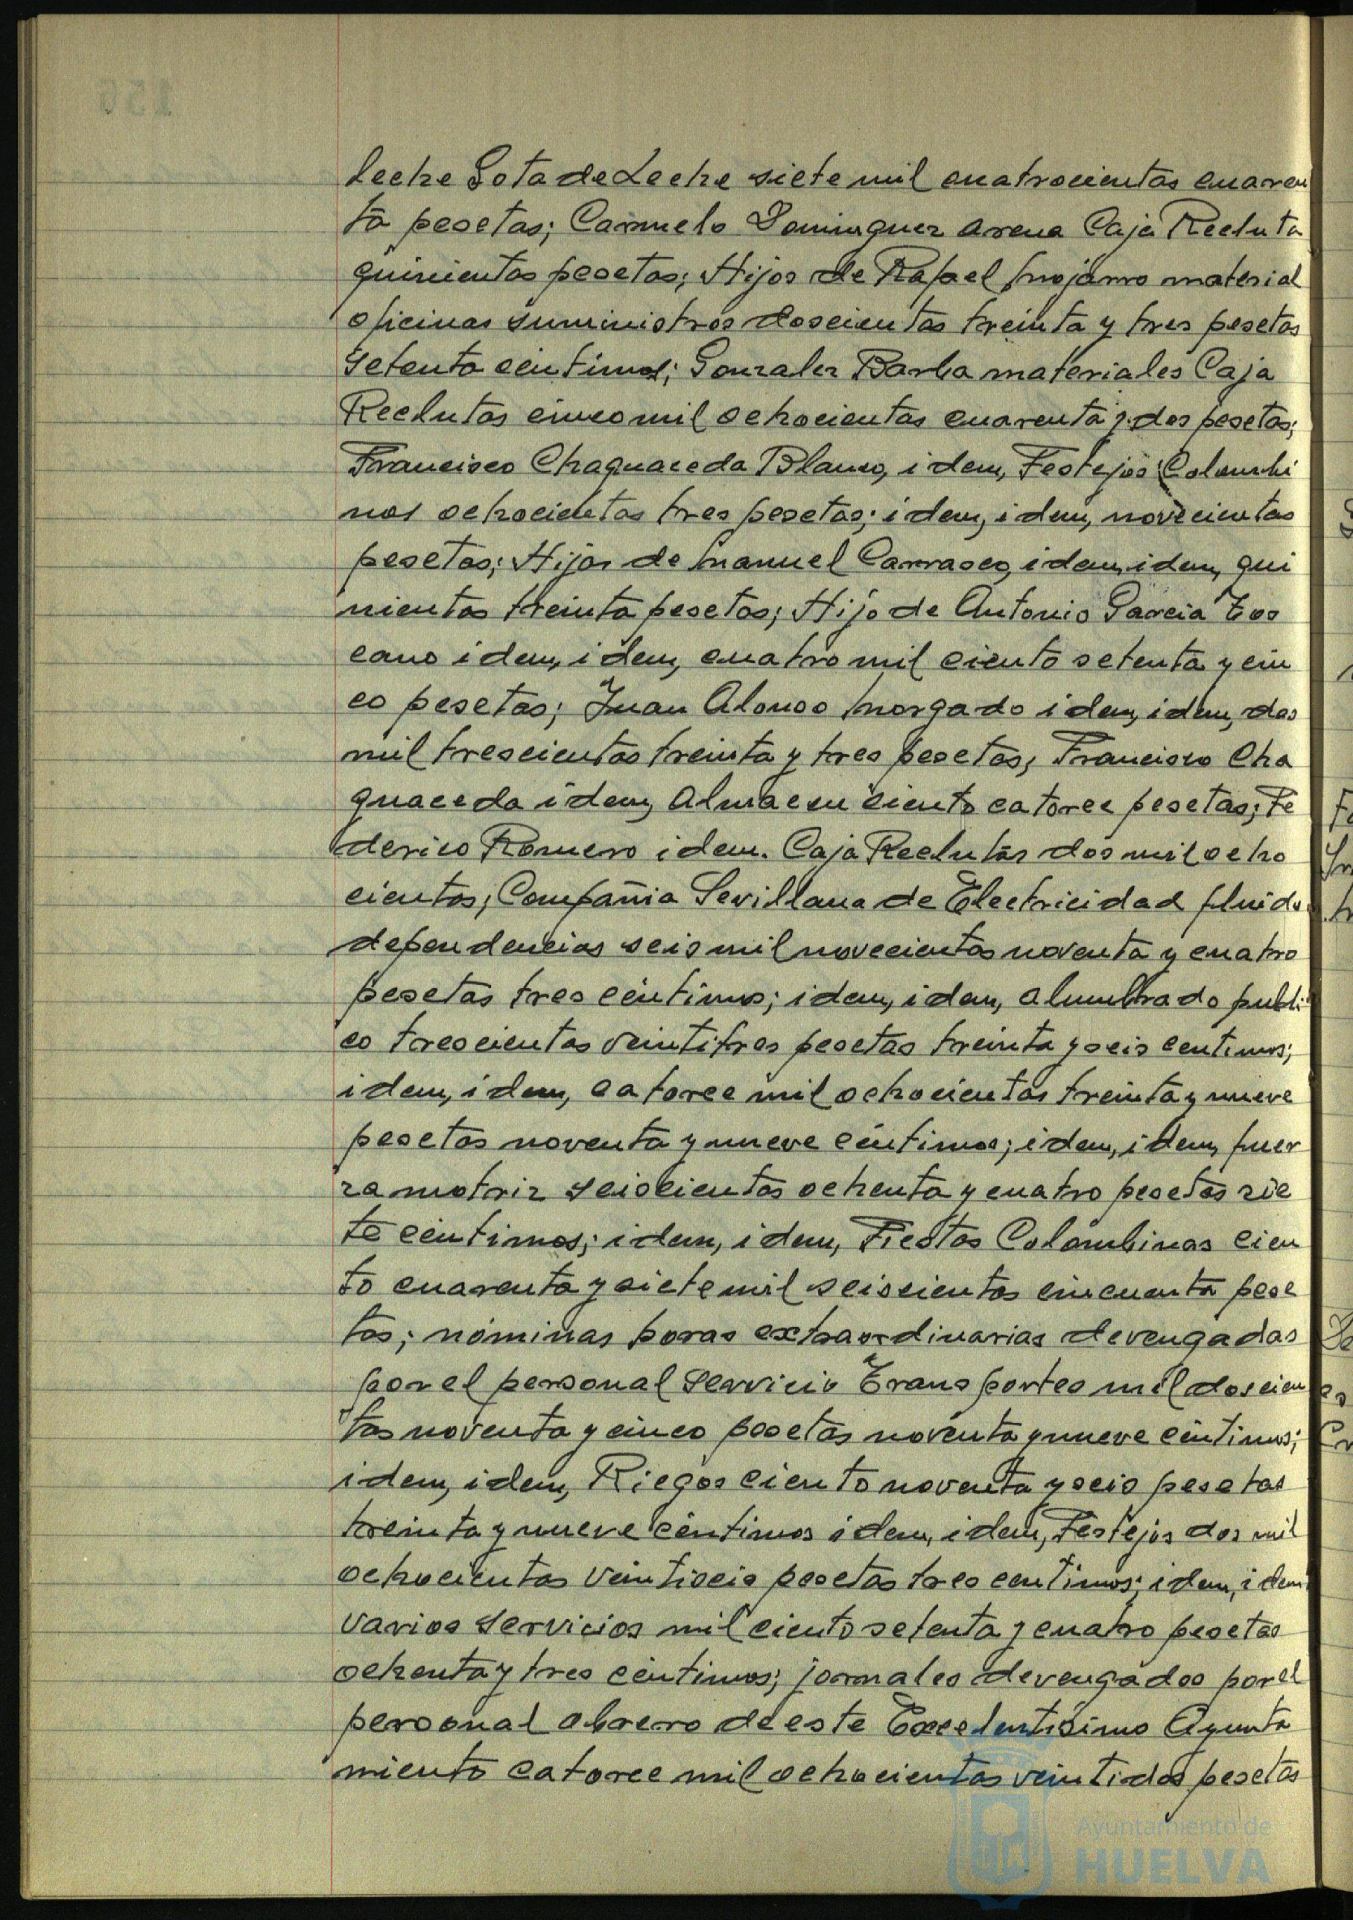 leche Gota de Leche siete mil cuatrocientas cuaren
ta pesetas; Carmelo Dominguez arena Caja Recluta
quinientas pesetas; Hijos de Rafael Mojarro material
oficinas suministros doscientas treinta y tres pesetas
setenta centimos; Gonzalez Barba materiales Caja
Reclutas cinco mil ochocientas cuarenta y dos pesetas;
Francisco Chaguaceda Blanco, idem, Festejos Colombi
nos ochocientas tres pesetas; idem, idem, novecientas
pesetas; Hijos de Manuel Carrasco, idem, idem, qui
nientas treinta pesetas; Hijo de Antonio Garcia Tos
cano idem, idem, cuatro mil ciento setenta y cin
co pesetas; Juan Alonso Morgado idem, idem, dos
mil trescientas treinta y tres pesetas; Francisco Cha
guaceda idem, Almacen ciento catorce pesetas; Fe
derico Romero idem. Caja Reclutas dos mil ocho
cientas; Compañia Sevillana de Electricidad fluido
dependencias seis mil novecientas noventa y cuatro
pesetas tres céntimos; idem, idem, alumbrado publi
co trescientas veintitres pesetas treinta y seis centimos;
idem, idem, catorce mil ochocientas treinta y nueve
pesetas noventa y nueve céntimos; idem, idem, fuer
za motriz seiscientas ochenta y cuatro pesetas sie
te céntimos; idem, idem, Fiestas Colombinas cien
to cuarenta y siete mil seiscientas cincuenta pese
tas; nóminas horas extraordinarias devengadas
por el personal servicio Transportes mil doscien
tas noventa y cinco pesetas noventa y nueve céntimos;
idem, idem, Riegos ciento noventa y seis pesetas
treinta y nueve céntimos idem, idem, Festejos dos mil
ochocientas veintiseis pesetas tres centimos; idem, idem
varios servicios mil ciento setenta y cuatro pesetas
ochenta y tres céntimos; jornales devengados por el
personal obrero de este Excelentísimo Ayunta
miento catorce mil ochocientas veintidos pesetas
Ayuntamiento de
HUELVA